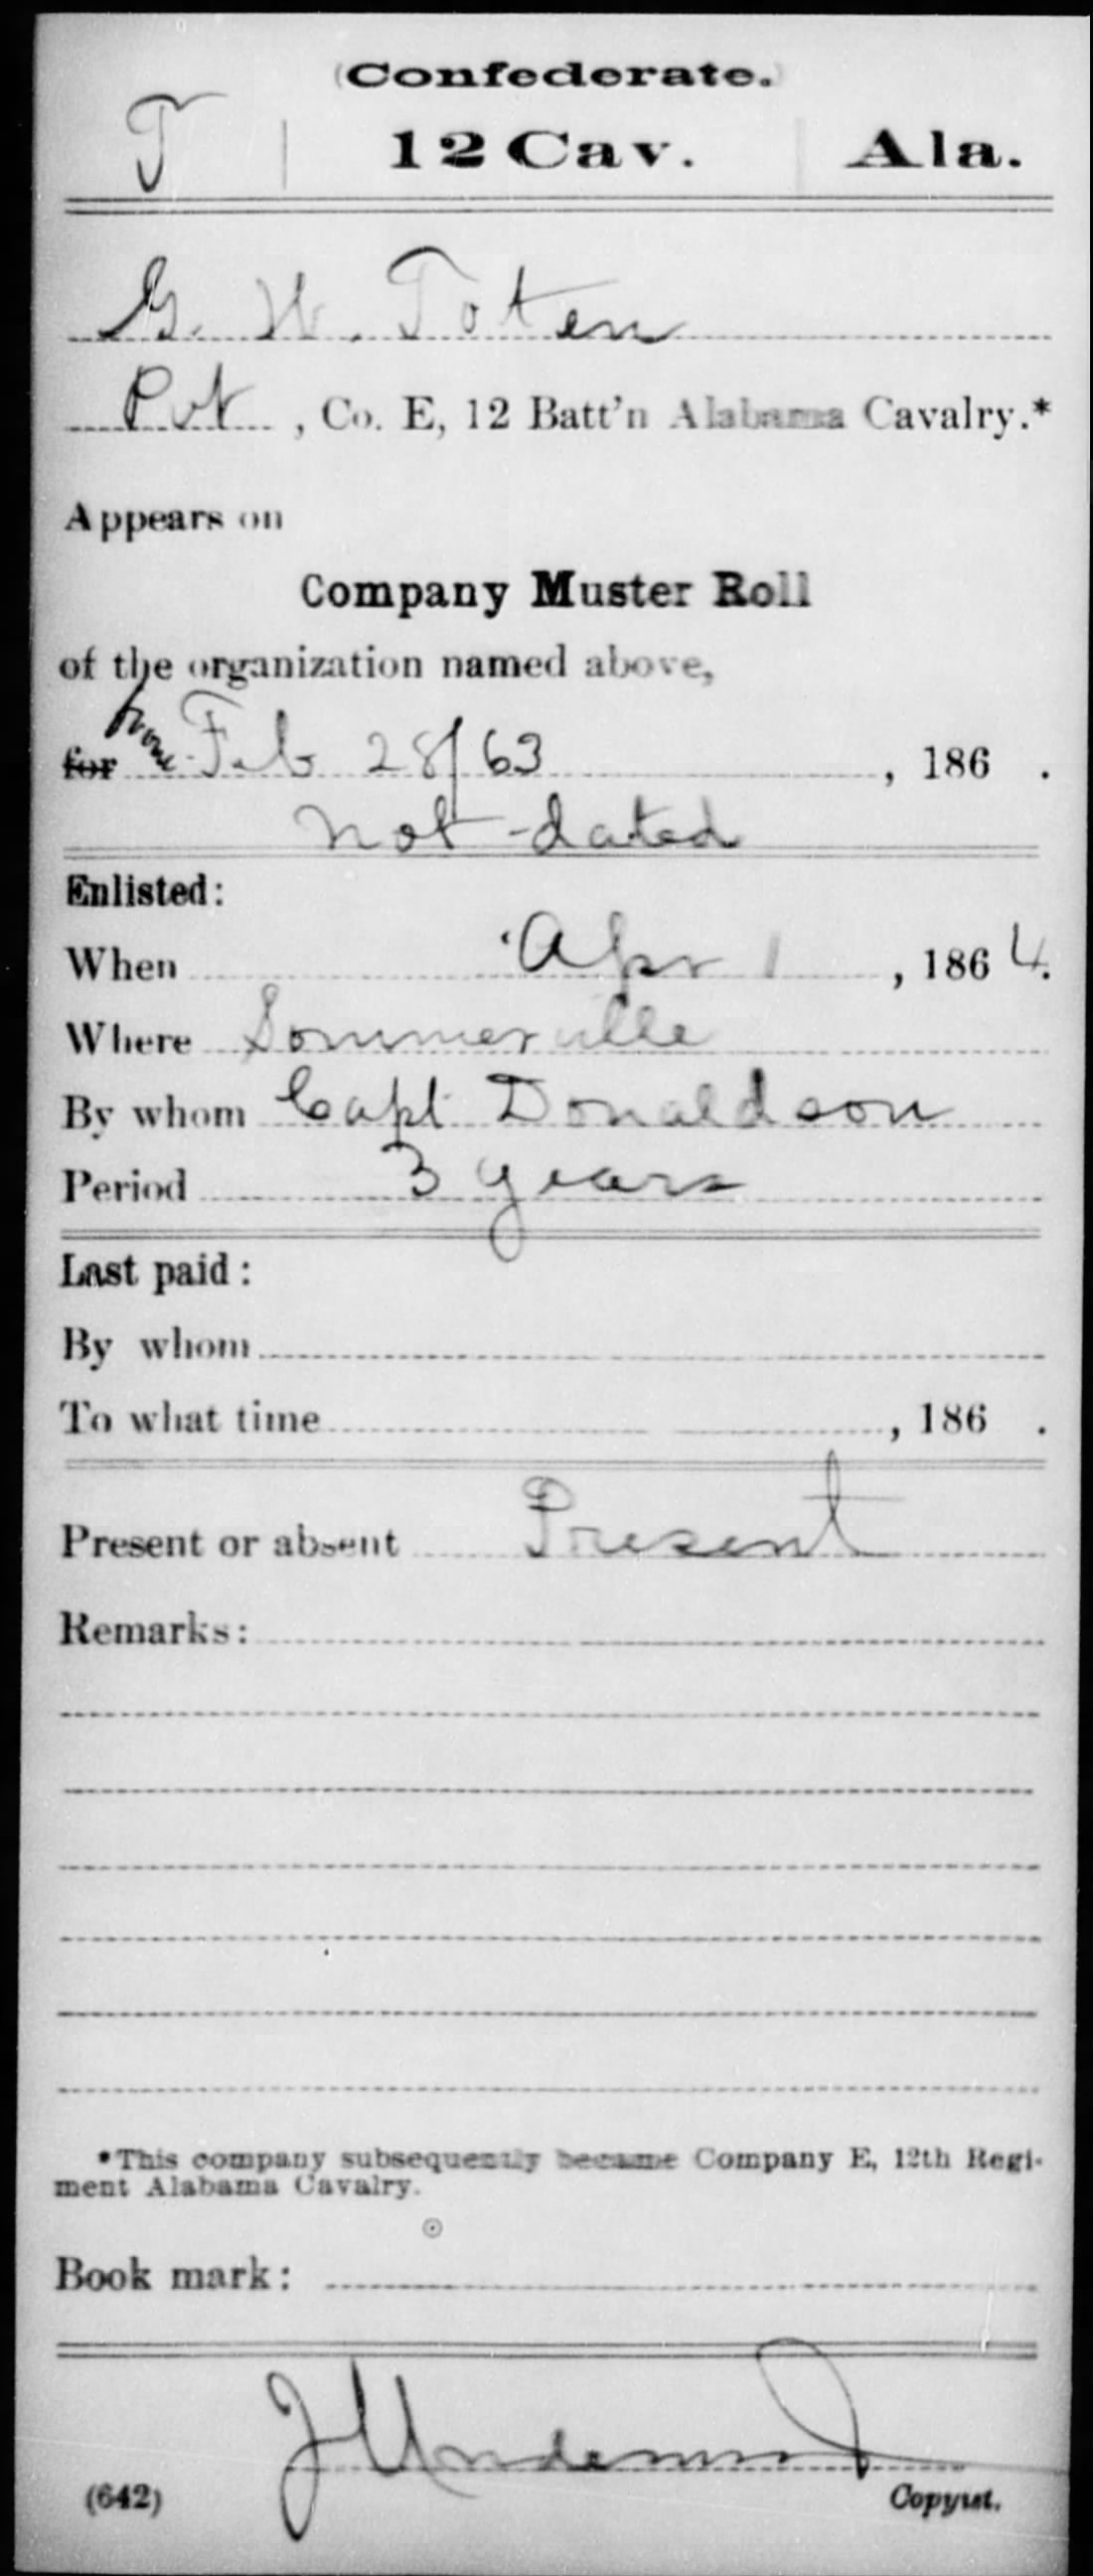 (Confederate.)
T | 12 Cav. | Ala.
G. W. Toten
Pvt, Co. E, 12 Batt'n Alabama Cavalry.*
Appears on
Company Muster Roll
of the organization named above,
from
for Feb 28/63, 186 .
not dated
Enlisted:
When Apr 1, 1864.
Where Sommerville
By whom Capt Donaldson
Period 3 years
Last paid:
By whom
To what time, 186 .
Present or absent Present
Remarks:
*This company subsequently became Company E, 12th Regi-
ment Alabama Cavalry.
Book mark:
(642) Copyist.